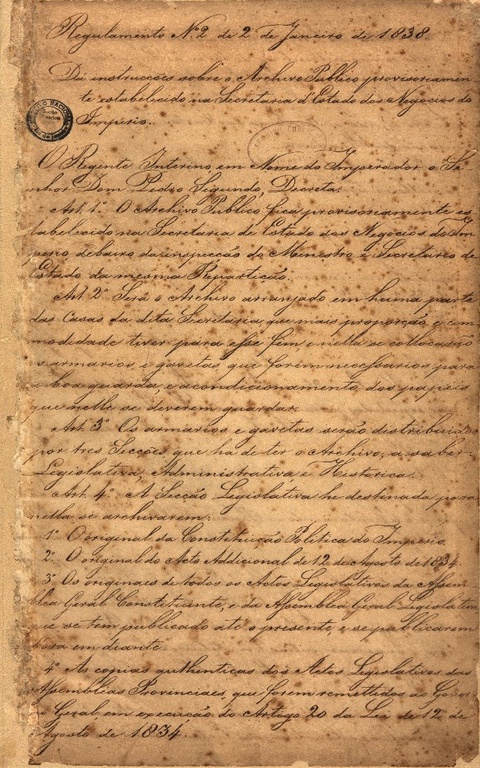 Regulamento Nº 2 de 2 de Janeiro de 1838
Dá instrucções sobre o Archivo Publico provisoriamen-
te estabelecido na Secretaria d'Estado dos Negocios do
Imperio.
O Regente Interino, em Nome do Imperador o Se-
nhor Dom Pedro Segundo, Decreta:
Art. 1º O Archivo Publico fica provisoriamente es-
tabelecido na Secretaria de Estado dos Negocios do Im-
perio debaixo da inspecção do Ministro e Secretario de
Estado da mesma Repartição.
Art. 2º Será o Archivo arranjado em huma parte
das Casas da dita Secretaria, que mais proporção e com-
modidade tiver para esse fim, e nella se collocarão
os armarios, e gavetas, que forem necessarios para
a boa guarda e acondicionamento dos papeis
que nelle se deverem guardar.
Art. 3º Os armarios e gavetas serão distribuidos
por tres Secções que ha de ter o Archivo; a saber
Legislativa, Administrativa e Historica.
Art. 4º A Secção Legislativa he destinada para
nella se archivarem:
1º O original da Constituição Politica do Imperio
2º O original do Acto Addicional de 12 de Agosto de 1834
3º Os originaes de todos os Actos Legislativos da Assem-
blea Geral Constituinte, e da Assemblea Geral Legislativa
que se tem publicado até o presente, e se publicarem
para em diante.
4º As copias authenticas dos Actos Legislativos das
Assembleas Provinciaes, que forem remettidos ao Gover-
no Geral em execução do Artigo 20 da Lei de 12 de
Agosto de 1834.